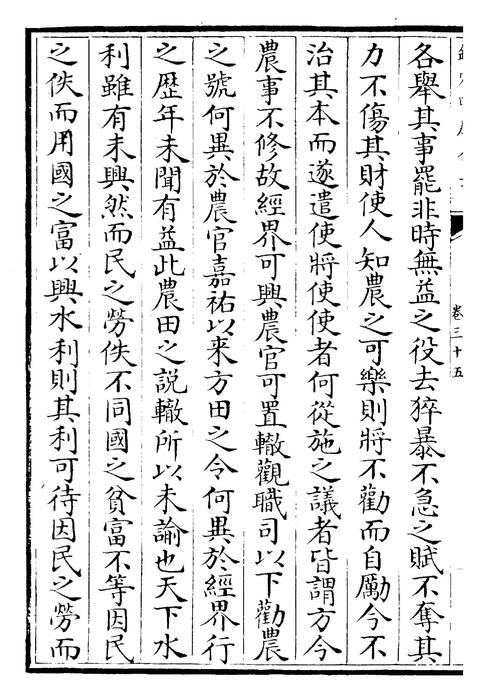 卷三十五
各舉其事罷非時無益之役去猝暴不急之賦不奪其
力不傷其財使人知農之可樂則將不勸而自勵今不
治其本而遂遣使將使使者何從施之議者皆謂方今
農事不修故經界可興農官可置轍觀職司以下勸農
之號何異於農官嘉祐以来方田之令何異於經界行
之歴年未聞有益此農田之說轍所以未諭也天下水
利雖有未興然而民之勞佚不同國之貧富不等因民
之佚而用國之富以興水利則其利可待因民之勞而